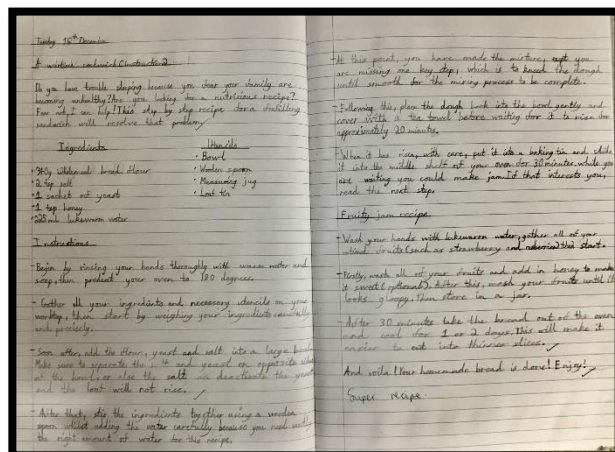 Tuesday 16th December
A wartime sandwich (Instructions)
Do you have trouble sleeping because you fear your family are
becoming unhealthy? Are you looking for a nutricious recipe?
Fear not, I can help! This step by step recipe for a fulfilling
sandwich will resolve that problem.
Ingredients
Utencils
• Bowl
• Wooden spoon
• Measuring jug
• Loaf tin
wholemeal bread flour
• 2 tsp salt
• 1 sachet of yeast
• 1 tsp honey
lukewarm water
Instructions
- Begin by rinsing your hands thoroughly with warm water and
soap, then preheat your oven to 180 degrees.
- Gather all your ingredients and necessary utencils on your
worktop, then start by weighing your ingredients carefully
and precisely.
- Soon after, add the flour, yeast and salt into a large bowl.
Make sure to separate the salt and yeast on opposite sides
of the bowl, or else the salt deactivate the yeast
and the loaf will not rise.
- After that, stir the ingredients together using a wooden
spoon whilst adding the water carefully because you need exactly
the right amount of water for this recipe.
- At this point, you have made the mixture, you
are missing one key step, which is to knead the dough
until smooth for the mixing process to be complete.
- Following this, place the dough back into the bowl gently and
cover with a tea towel before waiting for it to rise for
approximately 20 minutes.
- When it has risen, with care, put it into a baking tin and slide
it into the middle shelf of your oven for 30 minutes. While you
are waiting you could make jam. If that interests you,
read the next step.
Fruity jam recipe
- Wash your hands with lukewarm water, gather all of your
fruits (such as strawberry and start.
- Firstly, wash all of your fruits and add in honey to make
it sweet (optional). After this, mash your fruits until it
looks gloopy. Then store in a jar.
- After 30 minutes take the bread out of the oven
and cool for 1 or 2 days. This will make it
easier to cut into thinner slices.
And voila! Your homemade bread is done! Enjoy!
Super recipe.